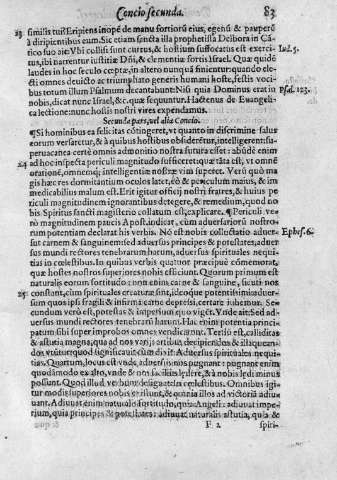 Concio secunda. 83
23 similis tui: Eripiens inopē de manu fortiorū eius, egenū & pauperē
à diripientibus eum. Sic etiam sancta illa prophetissa Delbora in Cā-
tico suo ait: Vbi collisi sunt currus, & hostium suffocatus est exerci- Iud. 5.
tus, ibi narrentur iustitiæ Dñi, & clementia in fortes Israel. Quæ quidē
laudes in hoc seculo cœptæ, in altero nunquā finientur: quando ele-
cti omnes deuicto ac triumphato generis humani hoste, festis vocibus
totum illum Psalmum decantabunt: Nisi quia Dominus erat in Psal. 123.
nobis, dicat nunc Israel, &c. quæ sequuntur. Hactenus de Euangeli-
ca lectione: nunc hostis nostri vires expendamus.
Secunda pars, vel alia Concio.
¶ Si hominibus ea felicitas cōtingeret, vt quanto in discrimine salus
eorum versaretur, & à quibus hostibus obsideretur, intelligerent: su-
peruacanea certè omnis admonitio nostra futura esset: abūdè enim
24 ad hoc inspecta periculi magnitudo sufficeret: quæ tāta est, vt omnē
orationē, omnemq; intelligentiæ nostræ vim superet. Verū quò ma-
gis hæc res dormitantium oculos latet, eò & periculum maius, & im-
medicabilius malum est. Erit igitur officij nostri, fratres, & huius pe-
riculi magnitudinem ignorantibus detegere, & remedium, quod no-
bis, Spiritus sancti magisterio collatum est, explicare. ¶ Periculi ve-
rò magnitudinem paucis Apost. indicat, cùm aduersariorū nostro-
rum potentiam declarat his verbis. Nō est nobis collectatio aduer- Ephes. 6.
sus carnem & sanguinem: sed aduersus principes & potestates, aduer-
sus mundi rectores tenebrarum harum, aduersus spirituales nequi-
tias in cœlestibus. In quibus verbis quatuor præcipuè cōmemorat,
quæ hostes nostros superiores nobis efficiunt. Quorum primum est
naturalis eorum fortitudo: non enim carne & sanguine, sicuti nos
25 constant, cùm spirituales creaturæ sint, ideoque potentissimi: aduer-
sum quos ipsi fragili & infirma carne depressi, certare iubemur. Se-
cundum verò est, potestas & imperium quo vigēt. Vnde ait: Sed ad-
uersus mundi rectores tenebrarū harum. Hac enim potentia princi-
patum sibi super improbos omnes vendicarunt. Tertiò est, calliditas
& astutia magna, qua ad nos varijs artibus decipiendos & illaquean-
dos vtūtur: quod significauit cùm dixit: Aduersus spirituales nequi-
tias. Quartum, locus est vnde aduersus nos pugnant: pugnant enim
quodāmodo ex alto, vnde & nos facilius lędere, & à nobis lędi minus
possunt. Quod illud verbum designat: In cœlestibus. Omnibus igi-
tur modis superiores nobis existunt, & omnia illos ad victoriā adiu-
uant. Adiuuat enim naturalis fortitudo, quia Angeli: adiuuat impe-
rium, quia principes & potestates: adiuuat naturalis astutia, quia &
F 2 spiri-